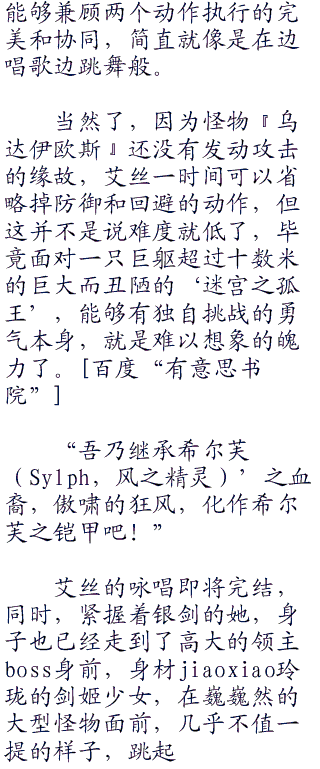 能够兼顾两个动作执行的完
美和协同，简直就像是在边
唱歌边跳舞般。
当然了，因为怪物『乌
达伊欧斯』还没有发动攻击
的缘故，艾丝一时间可以省
略掉防御和回避的动作，但
这并不是说难度就低了，毕
竟面对一只巨躯超过十数米
的巨大而丑陋的‘迷宫之孤
王’，能够有独自挑战的勇
气本身，就是难以想象的魄
力了。[百度“有意思书
院”]
“吾乃继承希尔芙
（Sylph，风之精灵）’之血
裔，傲啸的狂风，化作希尔
芙之铠甲吧！”
艾丝的咏唱即将完结，
同时，紧握着银剑的她，身
子也已经走到了高大的领主
boss身前，身材jiaoxiao玲
珑的剑姬少女，在巍巍然的
大型怪物面前，几乎不值一
提的样子，跳起